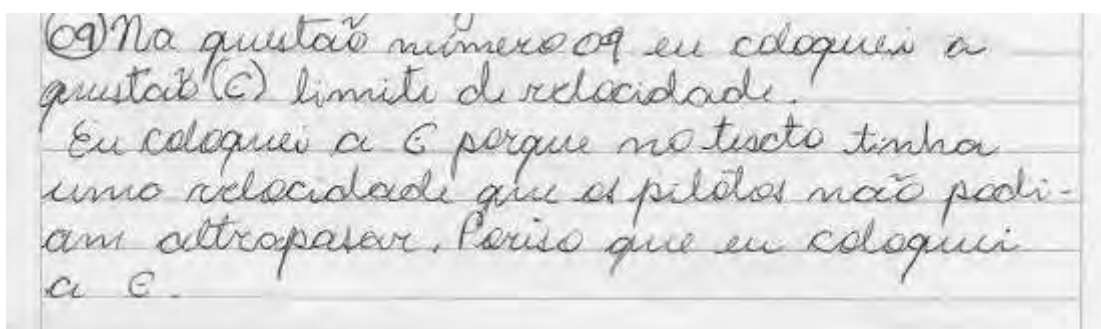 09) Na questão número 09 eu coloquei a
questão (C) limite de velocidade.
Eu coloquei a C porque no tescto tinha
uma velocidade que os pilotos não podi-
am altrapasar. Poriso que eu coloquei
a C.